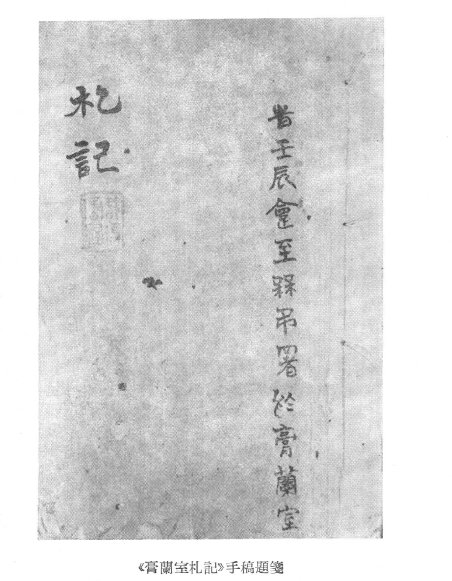 旹壬辰至槑弔署於膏蘭室
札記
《膏蘭室札記》手稿題箋